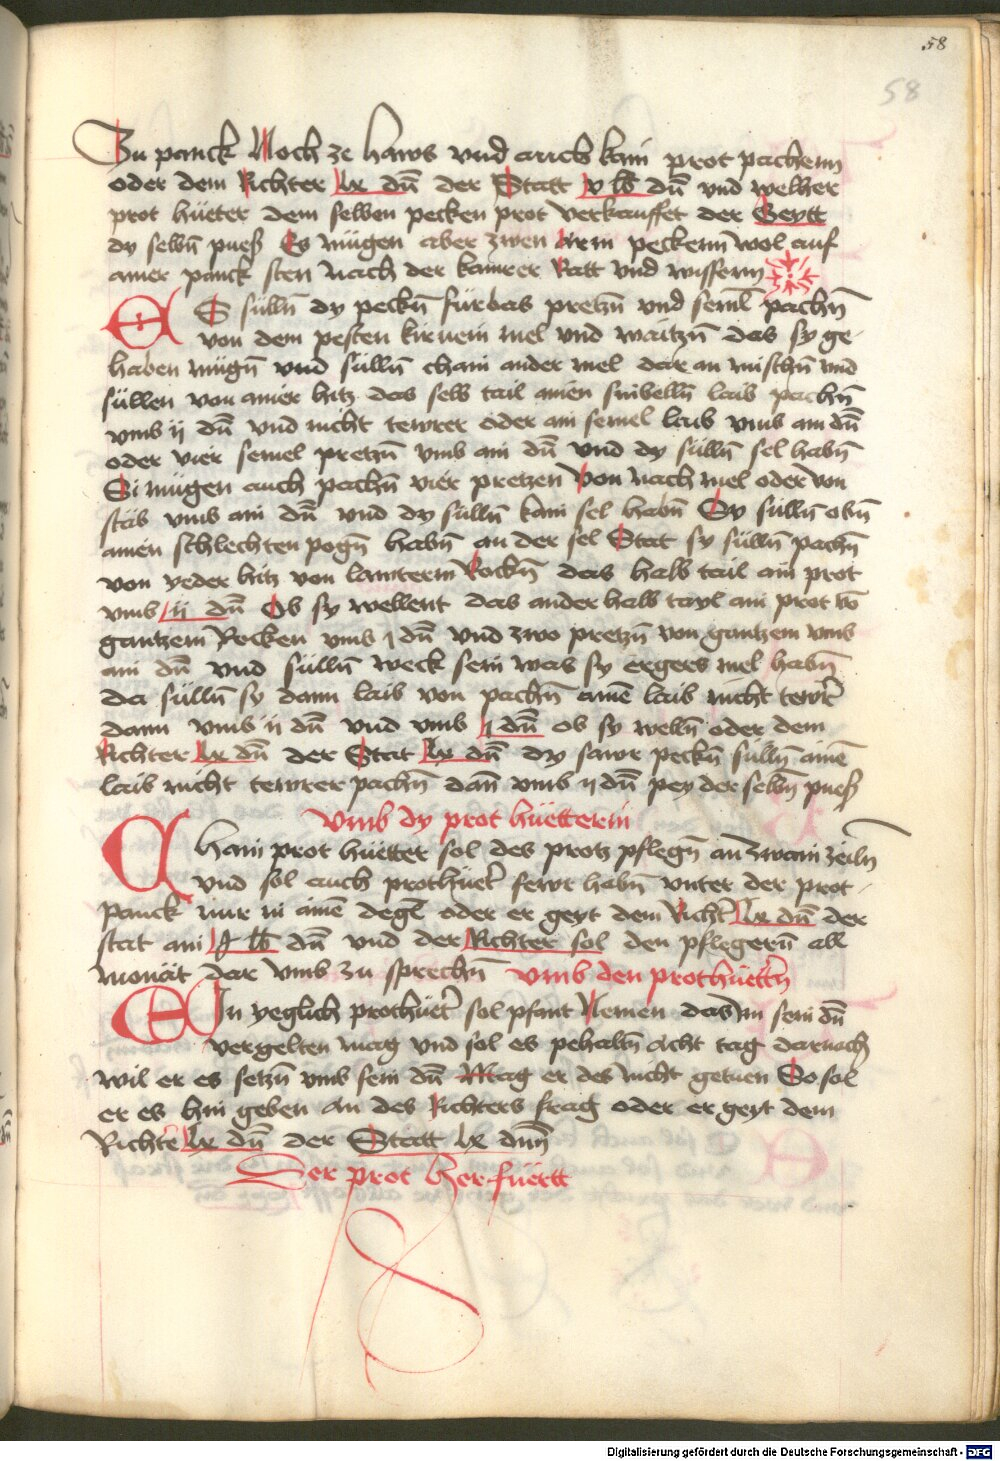 58
58
Zu panck Noch ze haws vnd auch kain prot pachenn
oder dem Richter lx dn̄ der Statt v lb dn̄ vnd welher
prot hüeter dem selben pecken prot verkauffet der Geytt
dy selbn̄ pueß Es mügen aber zwen arm peckenn wol auf
ainer panck sten nach der kamrer Ratt vnd wissenn
ES sülln̄ dy peckn̄ fürbas pretzn̄ vnd seml̄ pachn̄
von dem pesten kirnein mel vnd waitzn̄ das sy ge-
haben mügn̄ vnd sülln̄ chain ander mel dar an mischn̄ vnd
süllen von ainer hitz das selb tail ainen sinbelln̄ laib pachn̄
vmb ij dn̄ vnd nicht tewrer oder ain semel laib vmb ain dn̄
oder vier semel pretzn̄ vmb ain dn̄ vnd dy sülln̄ sel habn̄
Si mügen auch pachn̄ vier pretzen von nach mel oder von
stäb vmb ain dn̄ vnd dy sülln̄ kain sel habn̄ Sy sülln̄ obn̄
ainen schlechten pogn̄ habn̄ an der sel Stat sy sülln̄ pachn̄
von yeder hitz von lautterm Rockn̄ das halb tail ain prot
vmb ij dn̄ Ob sy wellent das ander halb tayl ain prot vō
gantzem Rocken vmb j dn̄ vnd zwo pretzn̄ von gantzem vmb
ain dn̄ vnd sülln̄ weck sein was sy ergers mel habn̄
da sülln̄ sy dann laib von pachn̄ ainē laib nicht tewr̄
dann vmb ij dn̄ vnd vmb j dn̄ ob sy welln̄ oder dem
Richter lx dn̄ der Stat lx dn̄ dy sawr peckn̄ sulln̄ ainē
laib nicht tewrer pachn̄ dan̄ vmb ij dn̄ pey der selbn̄ pueß
vmb dy prot hüetterin
Chain prot hüetter sol des protz pflegn̄ an zwain zeiln̄
vnd sol auch prothüet̄ fewr habn̄ vnter der prot-
panck nur in ainē degl̄ oder er geyt dem Richt̄ lx dn̄ der
stat ain lb dn̄ vnd der Richter sol den pflegern̄ all
monät dar vmb zu sprechn̄ vmb den prothüett̄n
EIn yeglich prothüet̄ sol pfant Nemen das im sein dn̄
vergelten mag vnd sol es pehaltn̄ Acht tag darnach
wil er es setzn̄ vmb sein dn̄ Mag er des nicht getuen So sol
er es hin geben an des Richters frag oder er geyt dem
Richt̄e lx dn̄ der Statt lx dnn̄
Der prot her-füertt
Digitalisierung gefördert durch die Deutsche Forschungsgemeinschaft - DFG